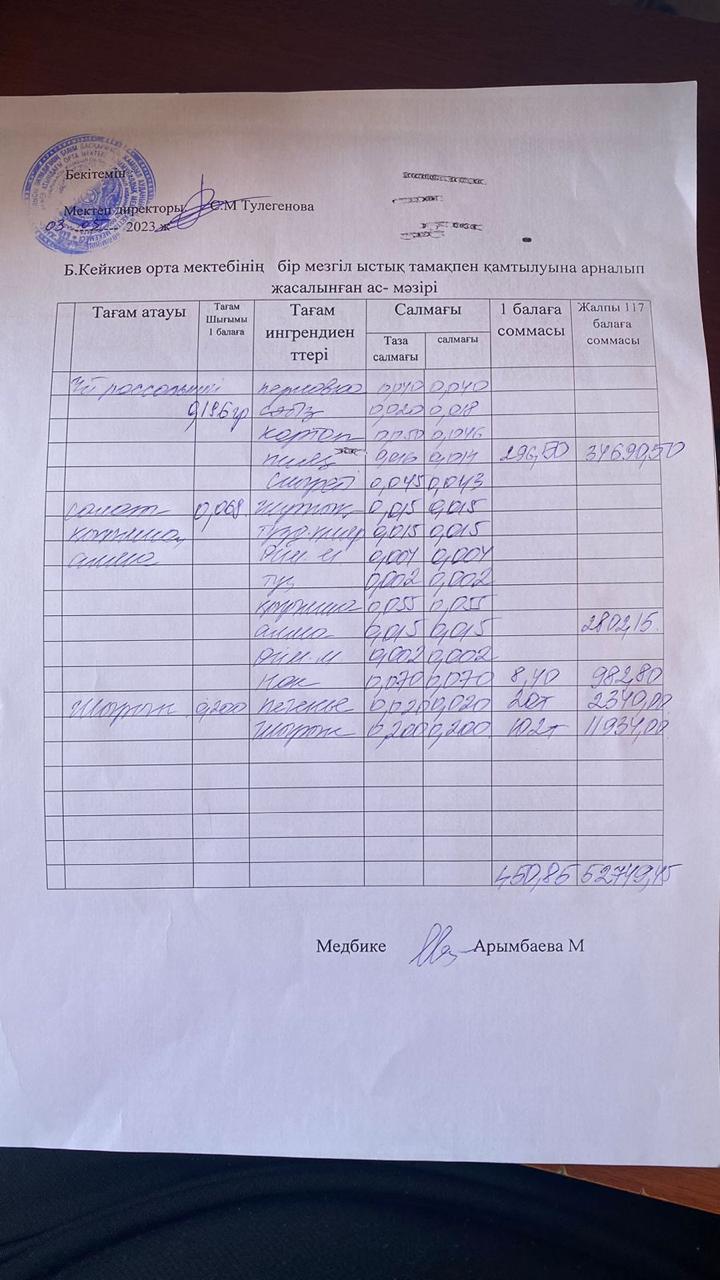 Бекітемін
Мектеп директоры С.М Тулегенова
03 05 2023 ж
Б.Кейкиев орта мектебінің бір мезгіл ыстық тамақпен қамтылуына арналып
жасалынған ас- мәзірі
Тағам атауы Тағам Шығымы 1 балаға Тағам ингрендиен ттері Салмағы 1 балаға соммасы Жалпы 117 балаға соммасы
Таза салмағы салмағы
Үй рассольнигі перловка 0,040 0,040
0,196гр сәбіз 0,020 0,018
картоп
пияз 296,50 34690,50
0,045 0,043
салат 0,068 0,015 0,015
капуста, 0,015 0,015
алма 0,004 0,004
тұз 0,002 0,002
капуста 0,055 0,055
алма 0,015 0,015 2802,15
0,002 0,002
нан 0,070 0,070 8,40 982,80
Шырын 0,200 печенье 0,020 0,020 20т 2340,00
шырын 0,200 0,200 102т 11934,00
450,85 52749,45
Медбике Арымбаева М